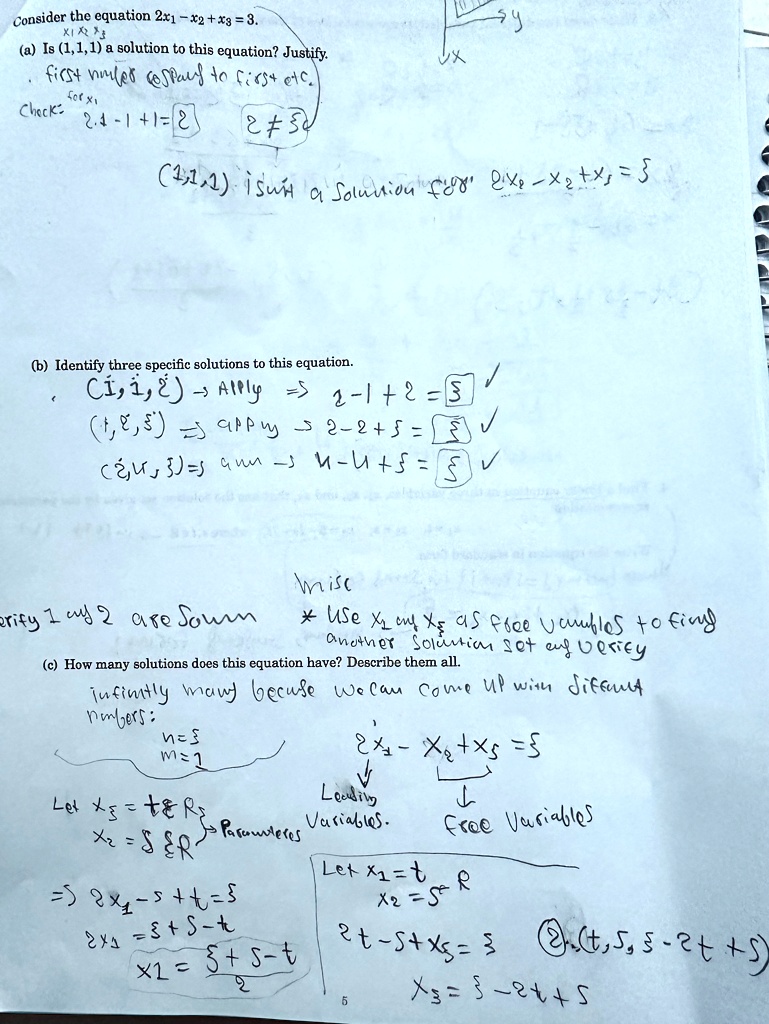 y
x
Consider the equation 2x₁ − x₂ + x₃ = 3.
x₁ x₂ x₃
(a) Is (1, 1, 1) a solution to this equation? Justify.
first number to first etc.
for x₁
Check: 2.1 - 1 + 1 = 2 2 ≠ 3
(1,1,1) isn't a Solution for 2x₂ - x₂ + x₃ = 3
(b) Identify three specific solutions to this equation.
(1,1,2) → Apply => 2-1+2 = 3 ✓
(1,2,3) => apply → 2-2+3 = 3 ✓
(2,4,3) => → 4-4+3 = 3 ✓
misc
1 and 2 are
* Use x₁ and x₃ as free variables to find
another solution set and verify
(c) How many solutions does this equation have? Describe them all.
infinitly many becuse we can come up with different
numbers:
n=3
m=1
2x₁ - x₂ + x₃ = 3
Leading
Variables.
free Variables
Let x₃ = t ∈ R
x₂ = S ∈ R
Parameters
=> 2x₁ - s + t = 3
2x₁ = 3 + s - t
x1 = 3 + s - t / 2
Let x₁ = t
x₂ = S ∈ R
2t - S + x₃ = 3
x₃ = 3 - 2t + S
②.(t, S, 3 - 2t + S)
5